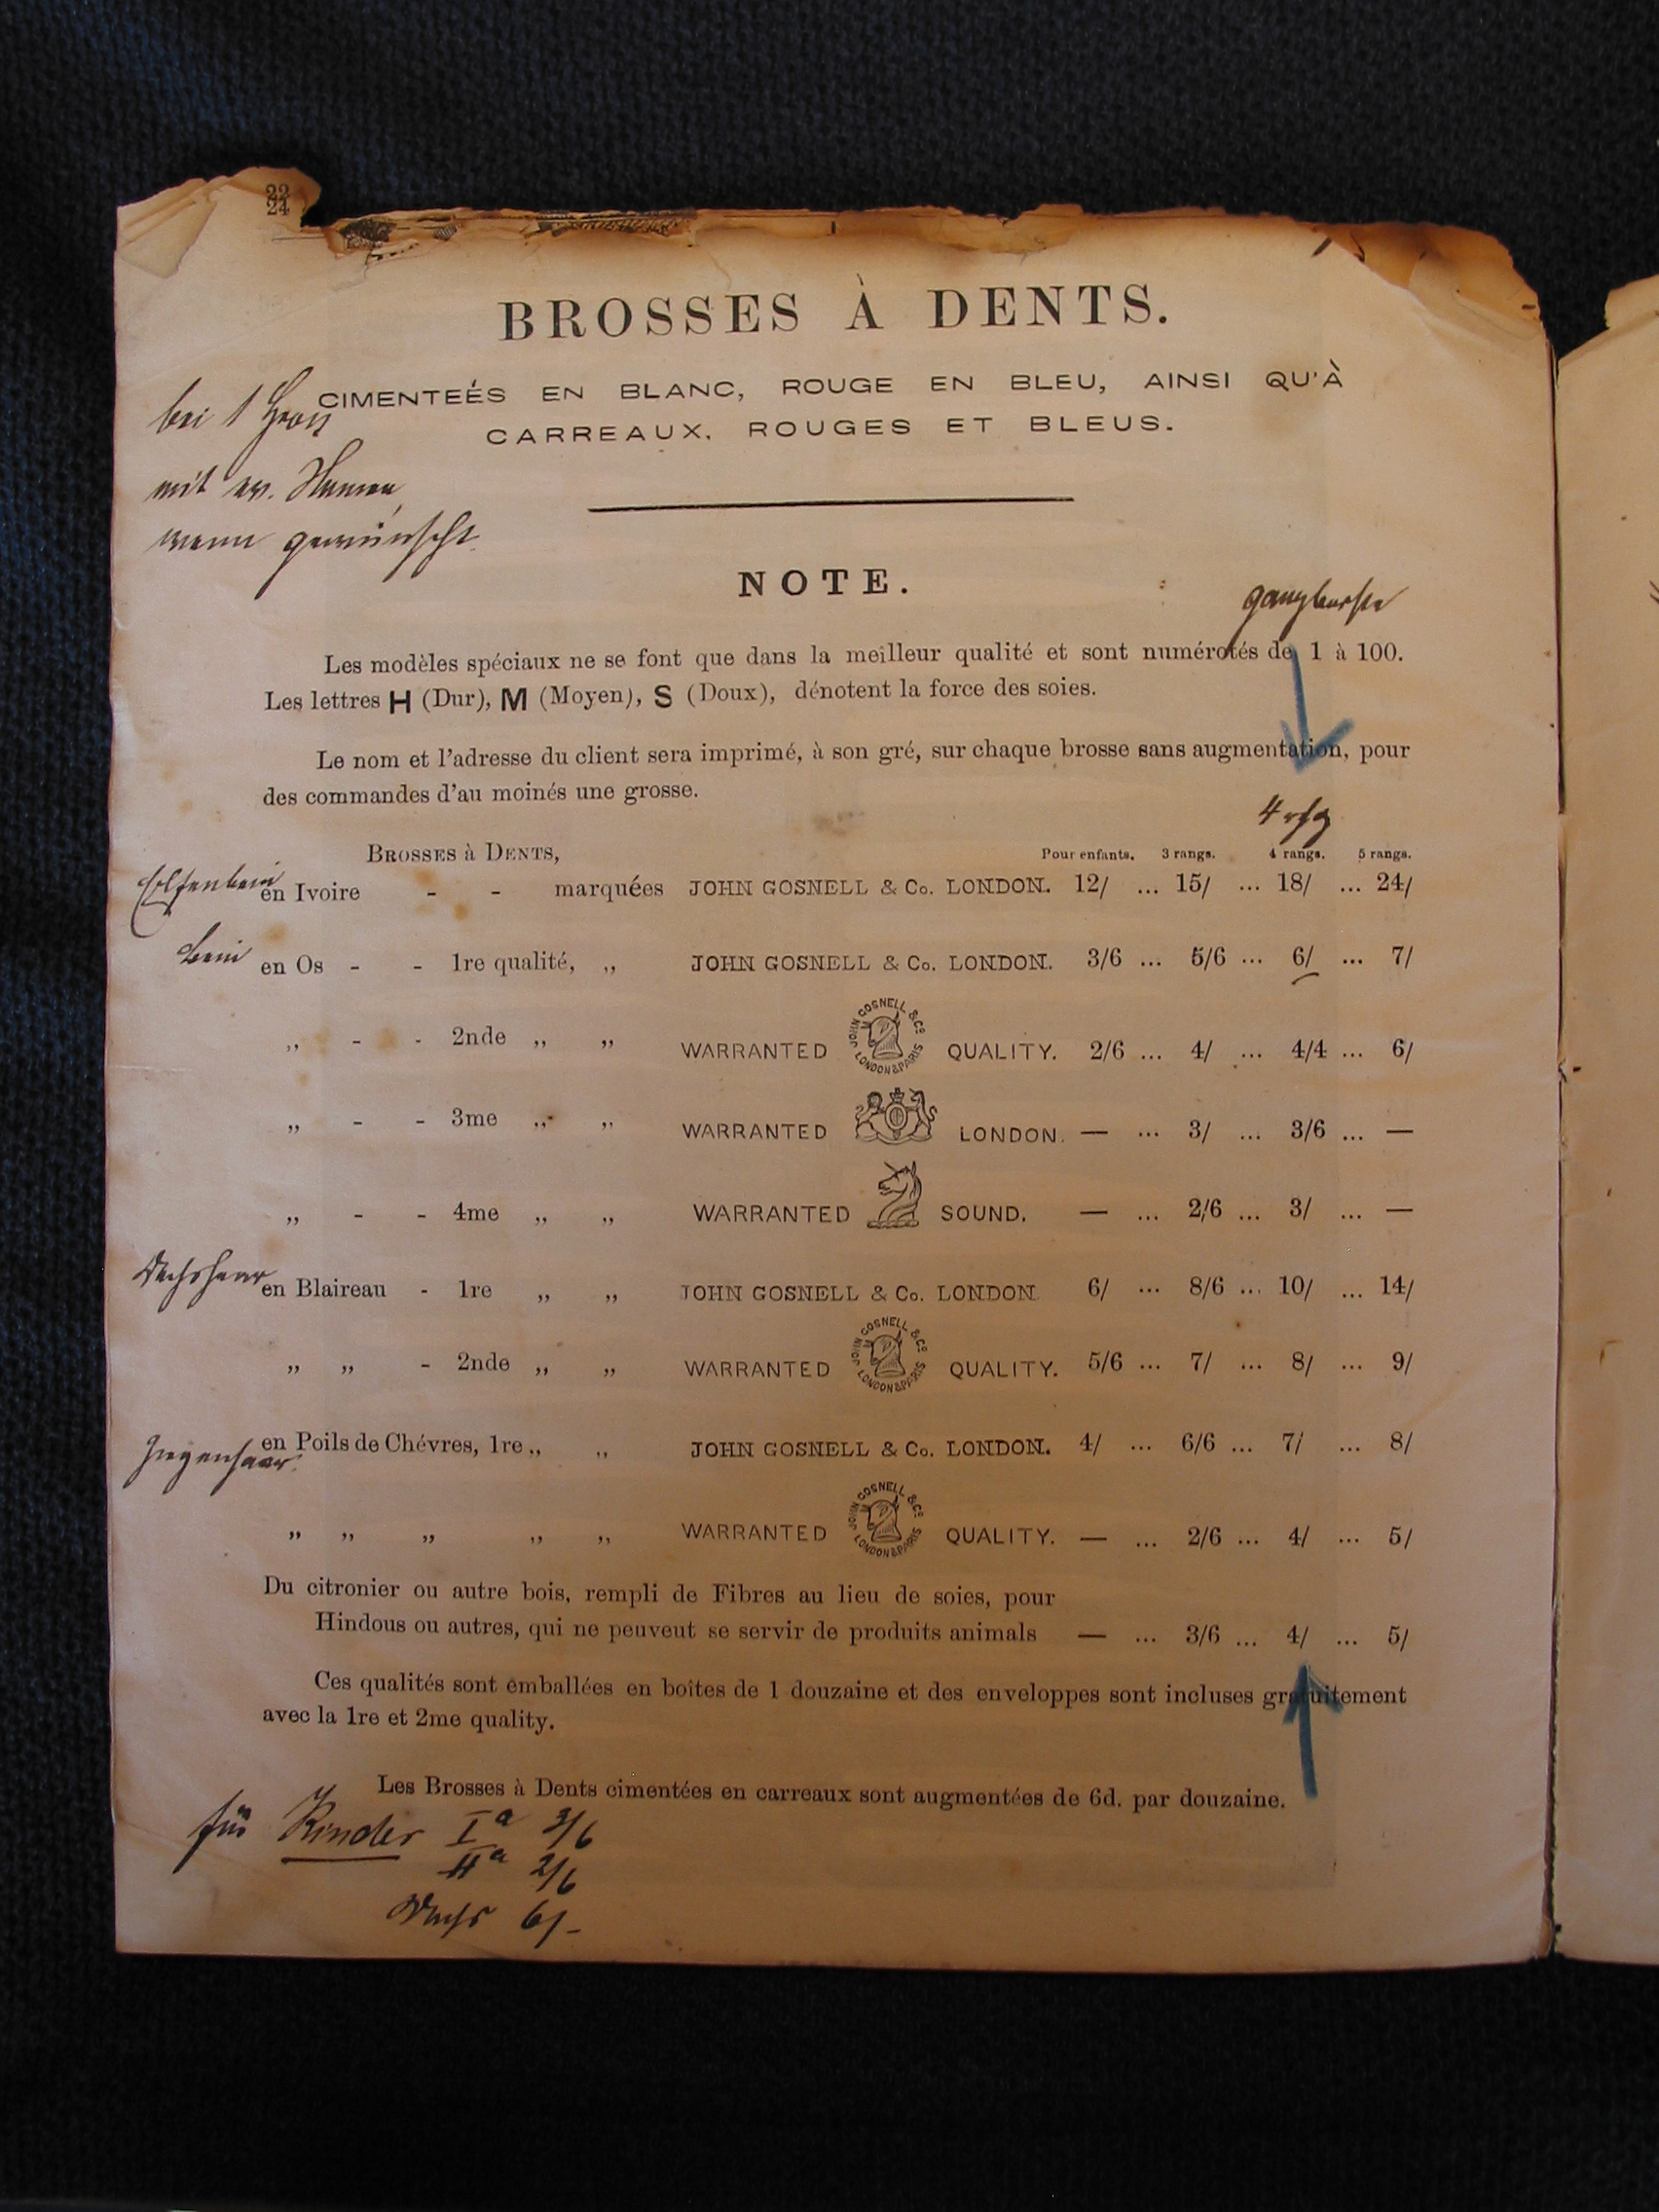 22
24
BROSSES À DENTS.
CIMENTEÉS EN BLANC, ROUGE EN BLEU, AINSI QU'À
CARREAUX, ROUGES ET BLEUS.
bei 1 Gross
mit
wenn gewünscht
NOTE.
gangbarste
Les modèles spéciaux ne se font que dans la meilleur qualité et sont numérotés de 1 à 100.
Les lettres H (Dur), M (Moyen), S (Doux), dénotent la force des soies.
Le nom et l'adresse du client sera imprimé, à son gré, sur chaque brosse sans augmentation, pour
des commandes d'au moinés une grosse.
BROSSES à DENTS, Pour enfants. 3 rangs. 4 rangs. 5 rangs.
Elfenbein en Ivoire - - marquées JOHN GOSNELL & Co. LONDON. 12/ ... 15/ ... 18/ ... 24/
Bein en Os - - 1re qualité, ,, JOHN GOSNELL & Co. LONDON. 3/6 ... 5/6 ... 6/ ... 7/
,, - - 2nde ,, ,, WARRANTED JOHN GOSNELL & Co LONDON & PARIS QUALITY. 2/6 ... 4/ ... 4/4 ... 6/
,, - - 3me ,, ,, WARRANTED LONDON. — ... 3/ ... 3/6 ... —
,, - - 4me ,, ,, WARRANTED SOUND. — ... 2/6 ... 3/ ... —
Dachshaar en Blaireau - 1re ,, ,, JOHN GOSNELL & Co. LONDON 6/ ... 8/6 ... 10/ ... 14/
,, ,, - 2nde ,, ,, WARRANTED JOHN GOSNELL & Co LONDON & PARIS QUALITY. 5/6 ... 7/ ... 8/ ... 9/
Ziegenhaar en Poils de Chévres, 1re ,, ,, JOHN GOSNELL & Co. LONDON. 4/ ... 6/6 ... 7/ ... 8/
,, ,, ,, ,, ,, WARRANTED JOHN GOSNELL & Co LONDON & PARIS QUALITY. — ... 2/6 ... 4/ ... 5/
Du citronier ou autre bois, rempli de Fibres au lieu de soies, pour
Hindous ou autres, qui ne peuveut se servir de produits animals — ... 3/6 ... 4/ ... 5/
Ces qualités sont emballées en boîtes de 1 douzaine et des enveloppes sont incluses gratuitement
avec la 1re et 2me quality.
Les Brosses à Dents cimentées en carreaux sont augmentées de 6d. par douzaine.
für Kinder Ia 3/6
IIa 2/6
Dachs 6/-